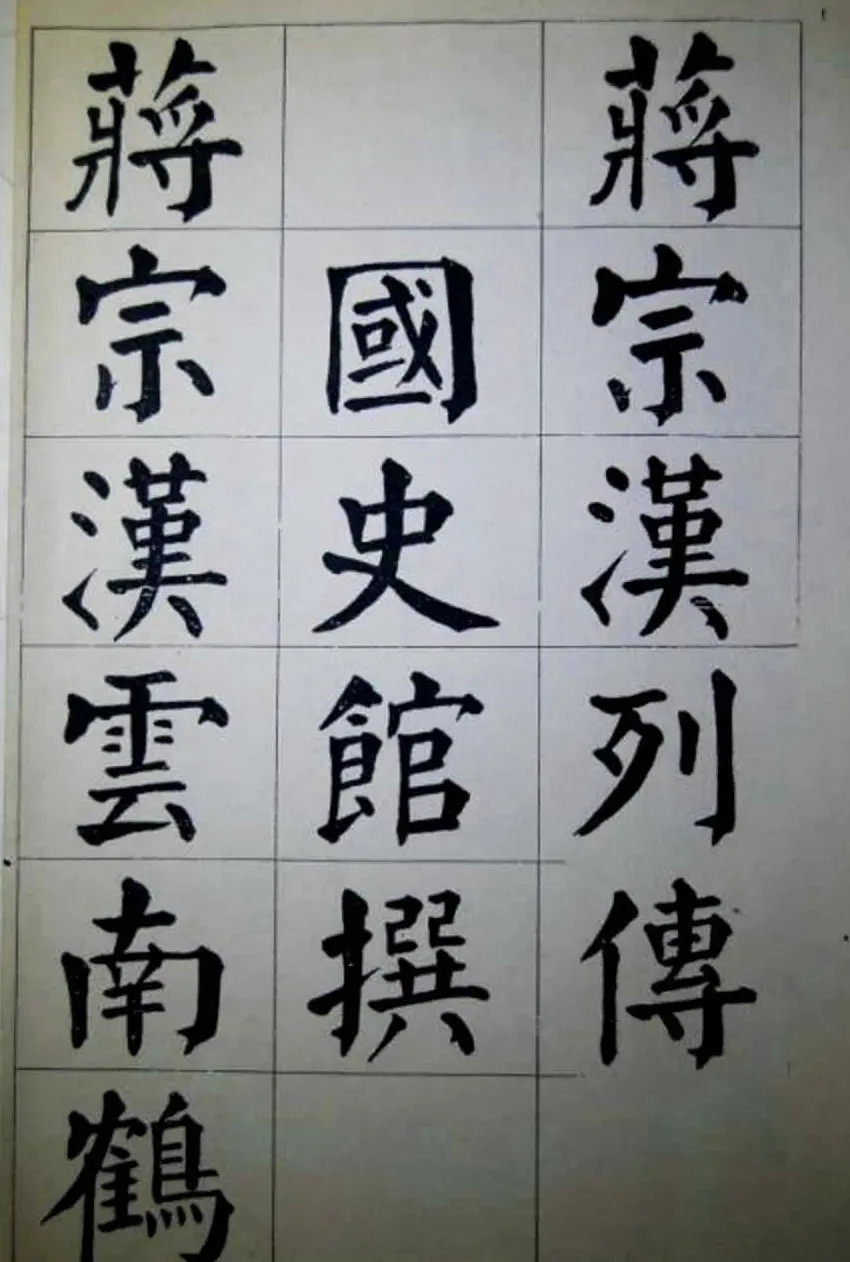 蔣宗漢列傳
國史館撰
蔣宗漢雲南鶴